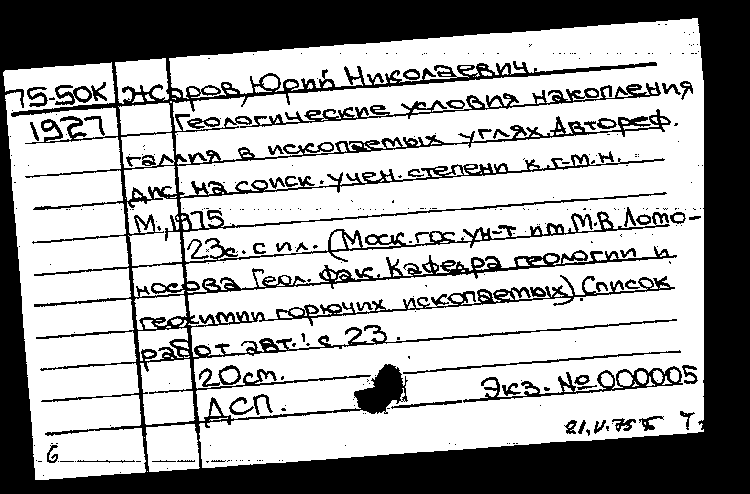 75-50К Жаров, Юрий Николаевич.
1927 Геологические условия накопления
галлия в ископаемых углях. Автореф.
дис. на соиск. учен. степени к.г-м.н.
М., 1975
23с. с ил. (Моск. гос. ун-т им. М.В. Ломо-
носова Геол. фак. Кафедра геологии и
геохимии горючих ископаемых). Список
работ авт.: с. 23.
20см.
ДСП. Экз. № 000005
21.V.75
6